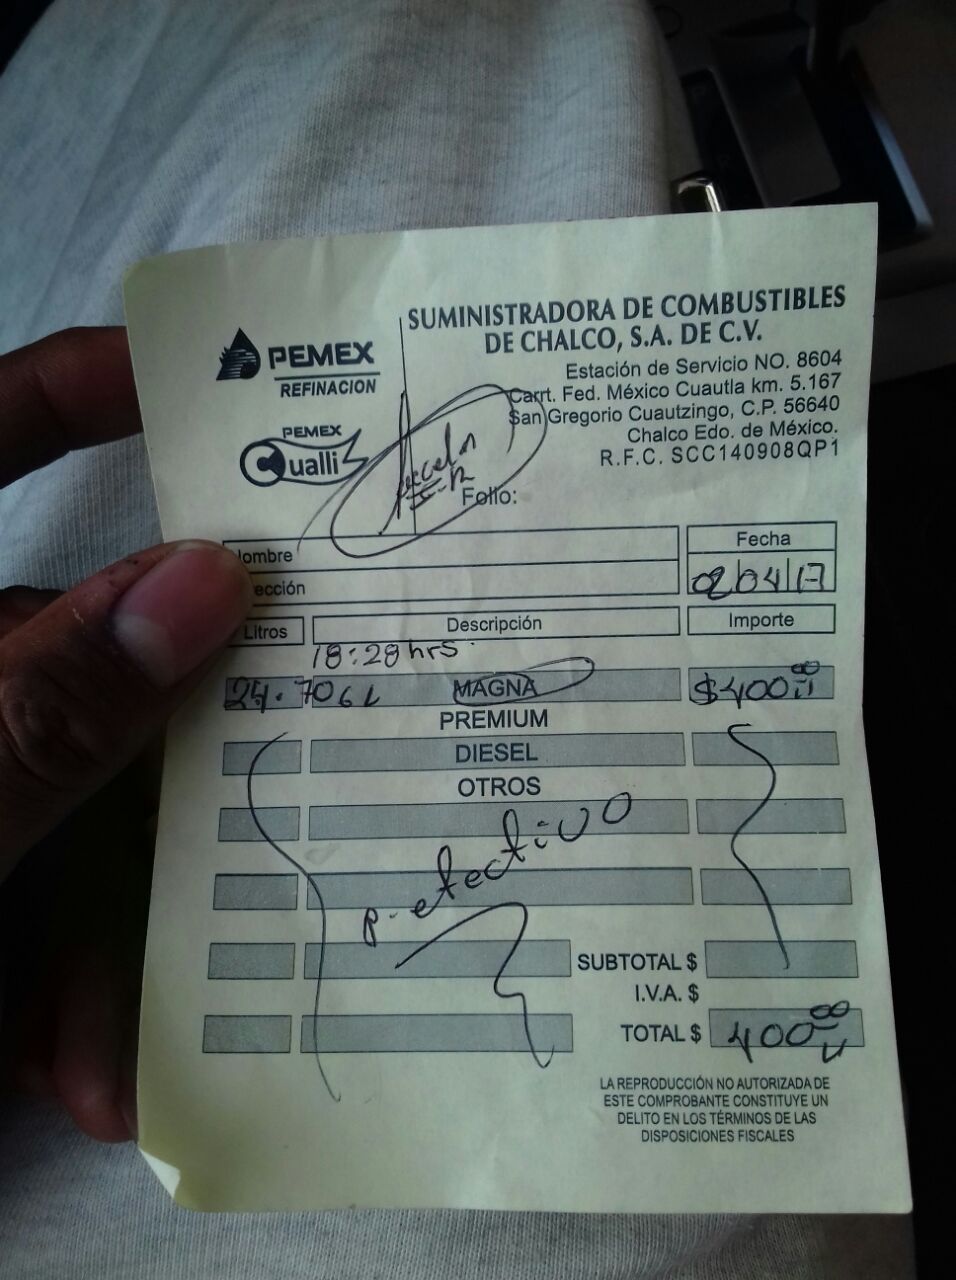 SUMINISTRADORA DE COMBUSTIBLES
DE CHALCO, S.A. DE C.V.
PEMEX
REFINACION
Estación de Servicio NO. 8604
Carrt. Fed. México Cuautla km. 5.167
San Gregorio Cuautzingo, C.P. 56640
Chalco Edo. de México.
R.F.C. SCC140908QP1
PEMEX
Cualli
Folio:
ombre
Fecha
ección
02/04/17
Litros Descripción Importe
18:28 hrs.
24.706 L MAGNA $400.00
PREMIUM
DIESEL
OTROS
p. efectivo
SUBTOTAL $
I.V.A. $
TOTAL $ 400.00
LA REPRODUCCIÓN NO AUTORIZADA DE
ESTE COMPROBANTE CONSTITUYE UN
DELITO EN LOS TÉRMINOS DE LAS
DISPOSICIONES FISCALES